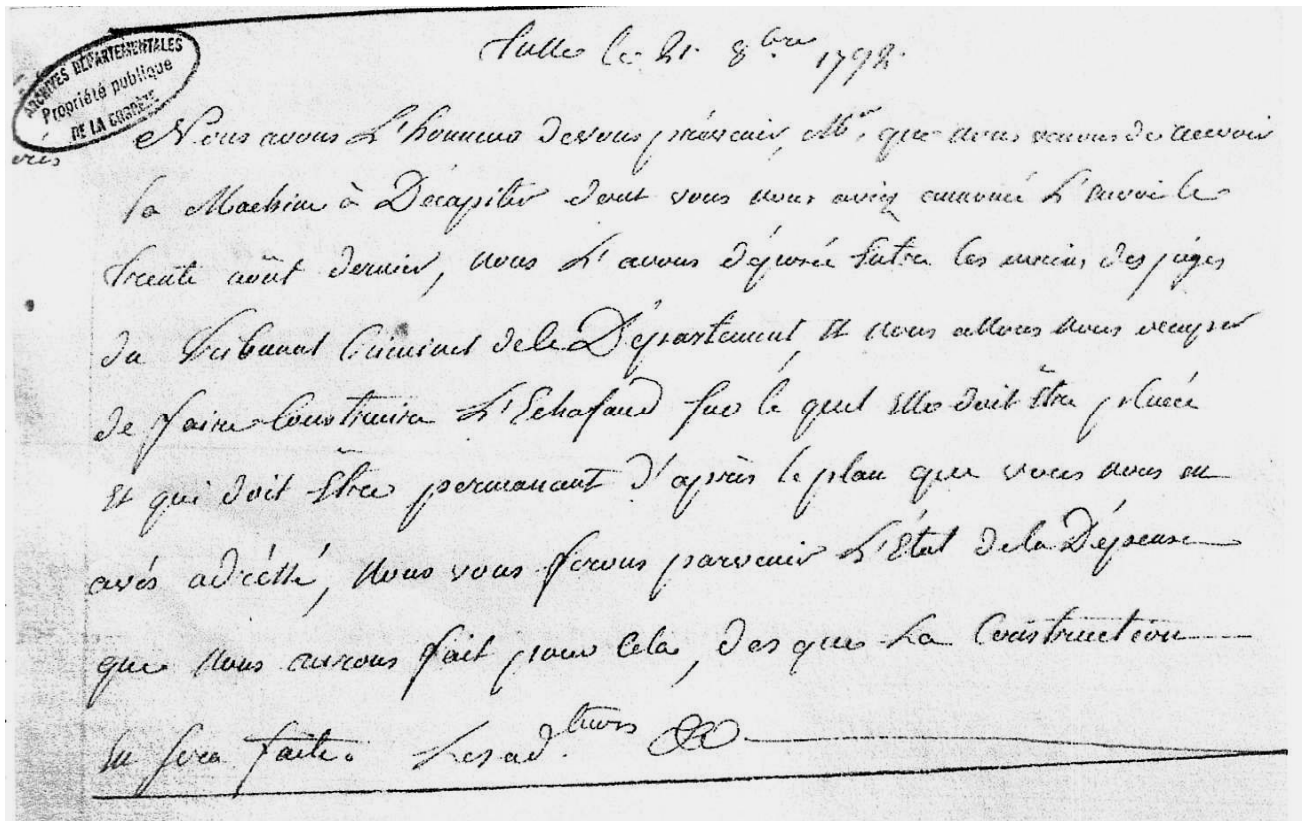 ARCHIVES DÉPARTEMENTALES
Propriété publique
DE LA CORRÈZE
Tulle le 21 8bre 1792.
Nous avons L'honneur de vous prévenir, Mr, que nous venons de recevoir
la Machine à Décapiter dont vous nous aviez annoncé L'envoi le
trente août dernier, nous L'avons déposée Entre les mains des juges
du Tribunal Criminel de le Département, Et nous allons nous occuper
de faire Construire L'Echafaud sur le quel Elle doit Être placée
Et qui doit Être permanant d'après le plan que vous nous en
avés adréssé, nous vous ferons parvenir L'État de la Dépense
que nous aurons fait pour Cela, des que La Construction
En sera faite. Les ad.teurs